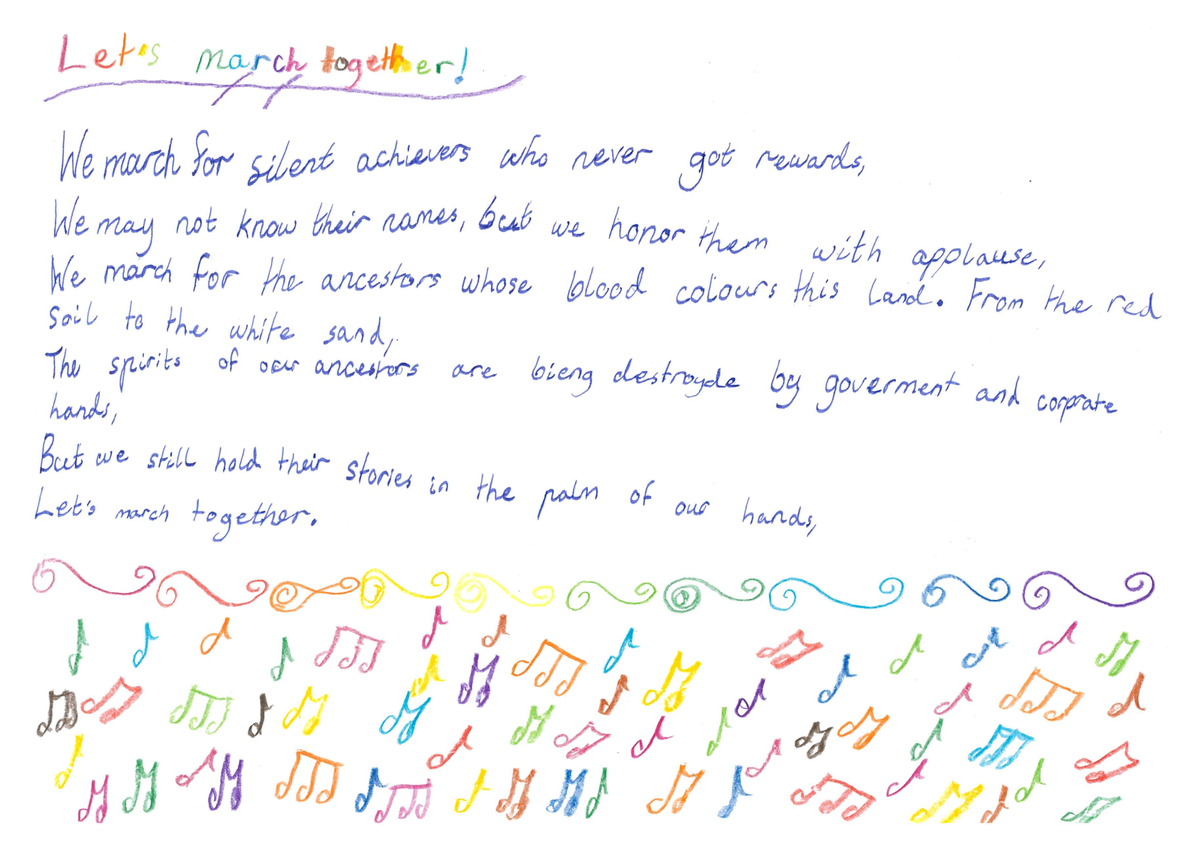 Let's march together!
We march for silent achievers who never got rewards,
We may not know their names, but we honor them with applause,
We march for the ancestors whose blood colours this land. From the red
soil to the white sand,
The spirits of our ancestors are bieng destroyde by goverment and corprate
hands,
But we still hold their stories in the palm of our hands,
Let's march together.